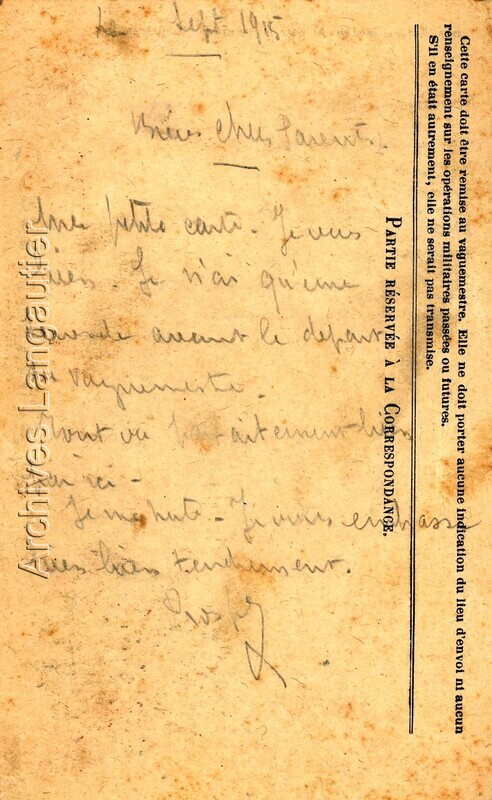 Sept 1915
Biens Chers Parents
petite carte. Je vous
Je n'ai qu'une
avant le départ
Vaguemestre.
Tout va parfaitement bien
ici -
Je me hate - Je vous embrasse
bien tendrement.
PARTIE RÉSERVÉE À LA CORRESPONDANCE.
Cette carte doit être remise au vaguemestre. Elle ne doit porter aucune indication du lieu d'envoi ni aucun
renseignement sur les opérations militaires passées ou futures.
S'il en était autrement, elle ne serait pas transmise.
Archives Langautier